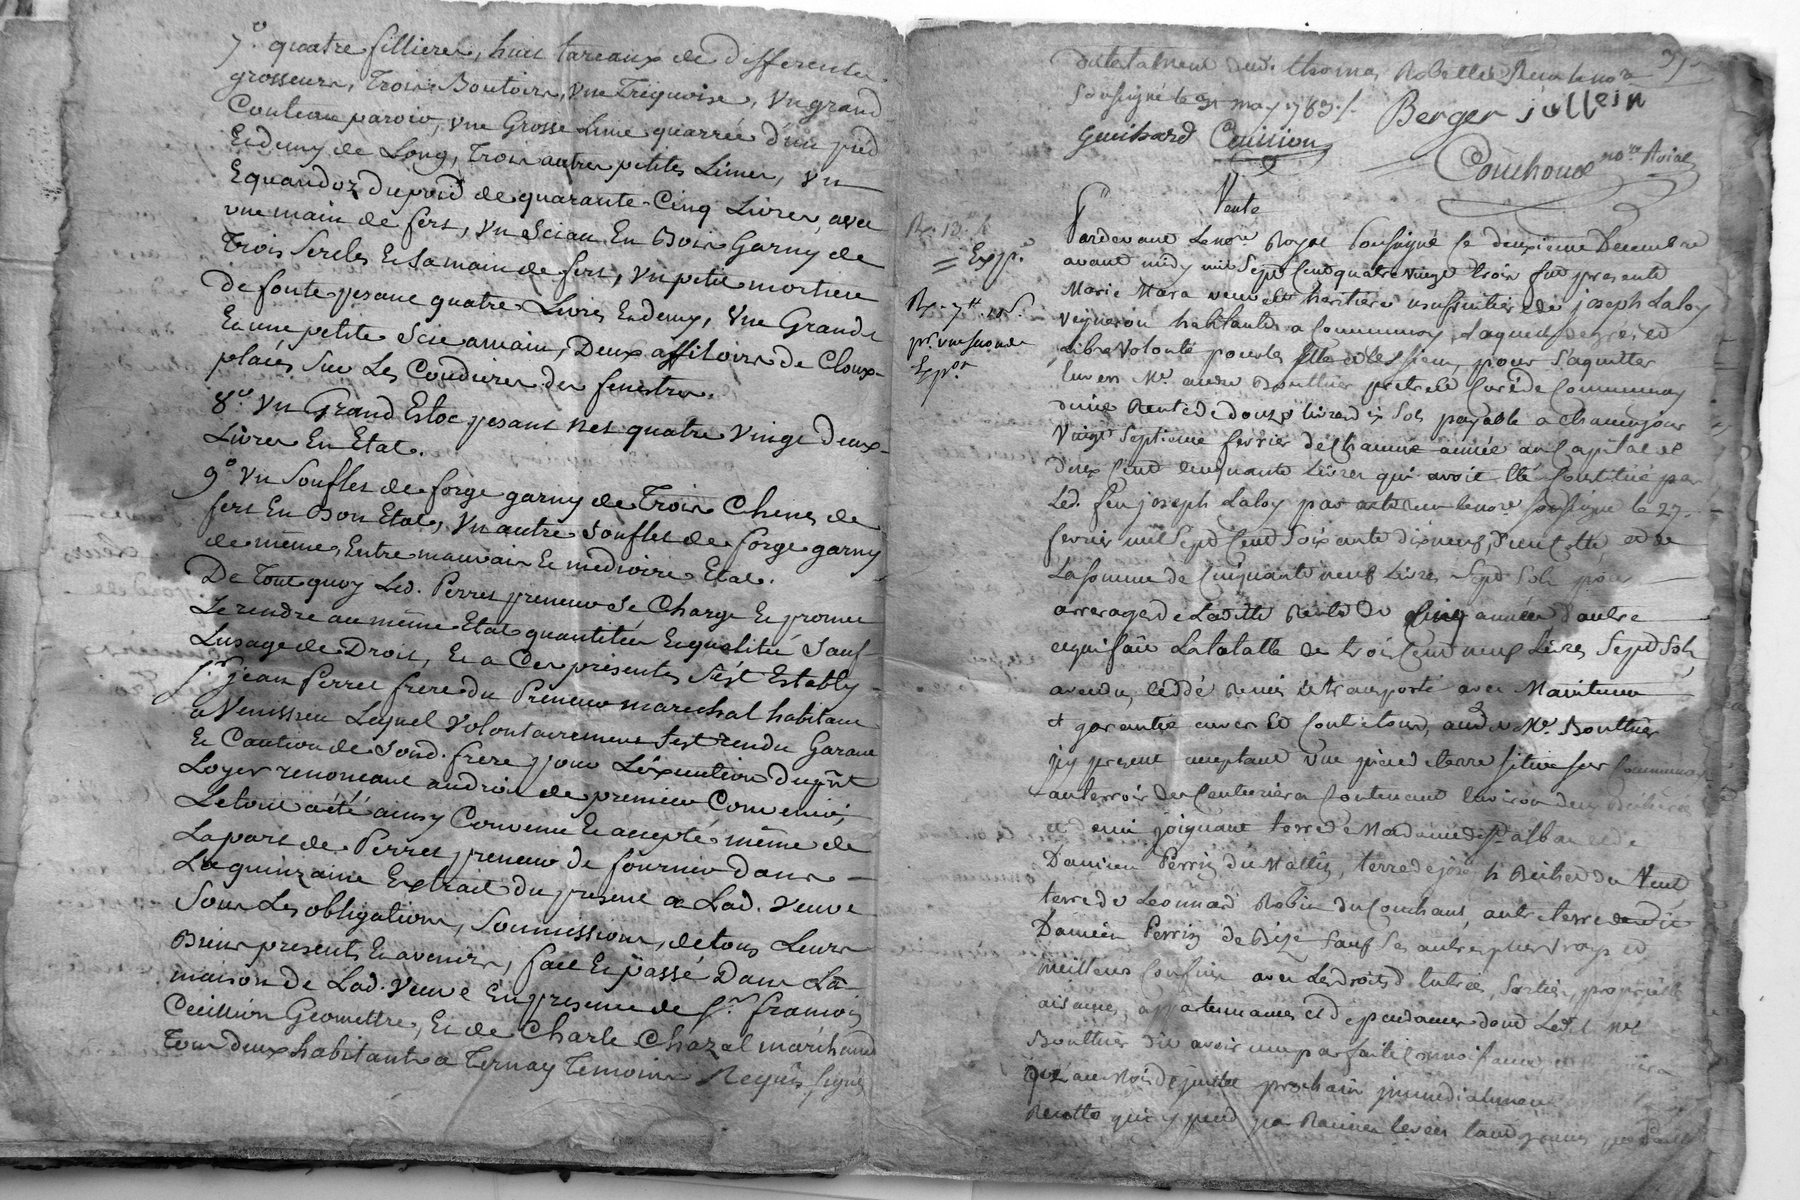 7.° quatre fillieres, huit tareaux de differente
grosseurs, Trois Boutoirs, une Triquoise, un grand
Couteau paroir, une Grosse Lime quarrée d'un pied
Et demy de Long, Trois autres petites Limes, un
Equandoz du poid de quarante-Cinq Livres, avec
une main de fert, un Sciau En Bois Garny de
Trois Sercles Et Sa main de fert, un petit mortier
De fonte pesant quatre Livres Et demy, une Grande
Et une petite Scie a main, Deux affiloirs de Cloux-
placés Sur Les Coudieres des fenestres.
8.° un Grand Estoc pesant net quatre vingt deux-
Livres En Etat.
9.° un Souflet de forge garny de Trois Chenes de
fert En Bon Etat, un autre Souflet de forge garny
de même, Entre mauvais Et mediocre Etat.
De Tout quoy Led. Perret preneur Se Charge Et promet
Le rendre au même Etat quantitée Et qualitée Sauf
Lusage de Droit, Et a Ces présentes S'est Estably-
S.r jean Perret frere du Preneur marechal habitant
a Venissieu Lequel volontairement S'est rendu Garant
Et Caution de Sond. frere pour L'éxecution du pñt
Loyer renonceant au droit de premier Convenir,
Le tout a été ainsy Convenu Et accepté même de
La part de Perret preneur de fournir dans-
La quinzaine Extrait du present a Lad. veuve
Sous Les obligations, Soumissions, de tous Leurs
Biens présents Et avenirs, fait Et passé Dans La
maison de Lad. veuve En presence de S.r françois
Ceuillion Geomettre, Et de Charle Chazal marchand
Tous deux habitants a Ternay Temoins Requis signés
thomas Robellet
Soussigné le 31 may 1783 /.
Berger jullein
Guichard Ceuillion
Couchoud no.re Royal
Vente
Exp.
Pardevant Le no.re Royal Soussigné Ce deuxieme Decembre
avant midy mil Sept Cent quatre vingt trois fut presente
Marie Mara veuve et heritiere usufruitiere de joseph Laloy
vigneron habitante a Communay, Laquelle de gré et
Libre volonté pour elle et les siens, pour S'aquitter
Envers M.r Bouthier prêtre et Curé de Communay
d'une Rente de douze livres dix Sols payable a chaque jour
vingt Septieme fevrier de chaque année au Capital de
Deux Cent Cinquante Livres qui avoit eté Constitué par
Led. feu joseph Laloy par acte reçu le no.re Soussigné le 27.
fevrier mil Sept Cent Soixante dix neuf, d'une Cotte, et de
La Somme de Cinquante neuf Livres Sept Sols pour
arrerages de Laditte Rente de Cinq années d'autre
ce qui fait La totalle de trois Cent neuf Livres Sept Sols,
a vendu, Cédé Remis et transporté avec Maintenue
et garantie envers Et Contre tous, aud. M.r Boutthier
icy present acceptant une piece de terre Située sur Communay
au terroir des Centuriers Contenant Environ deux Bicherées
et demi joignant terre de Madame de S.t alban et de
Damien Perrin du Mattin, terre de du Vent,
terre de Leonnard Robin du Couchant, autre terre dudit
Damien Perrin de Bize Sauf Ses autres plus vrays et
meilleurs Confins avec Les droits d'Entrées, Sorties, proprietés
aisances, appartenances et dependances dont Led. M.r
Boutthier dit avoir une parfaite Connoissance
prochain jmmediatement
Recolte qui y pend